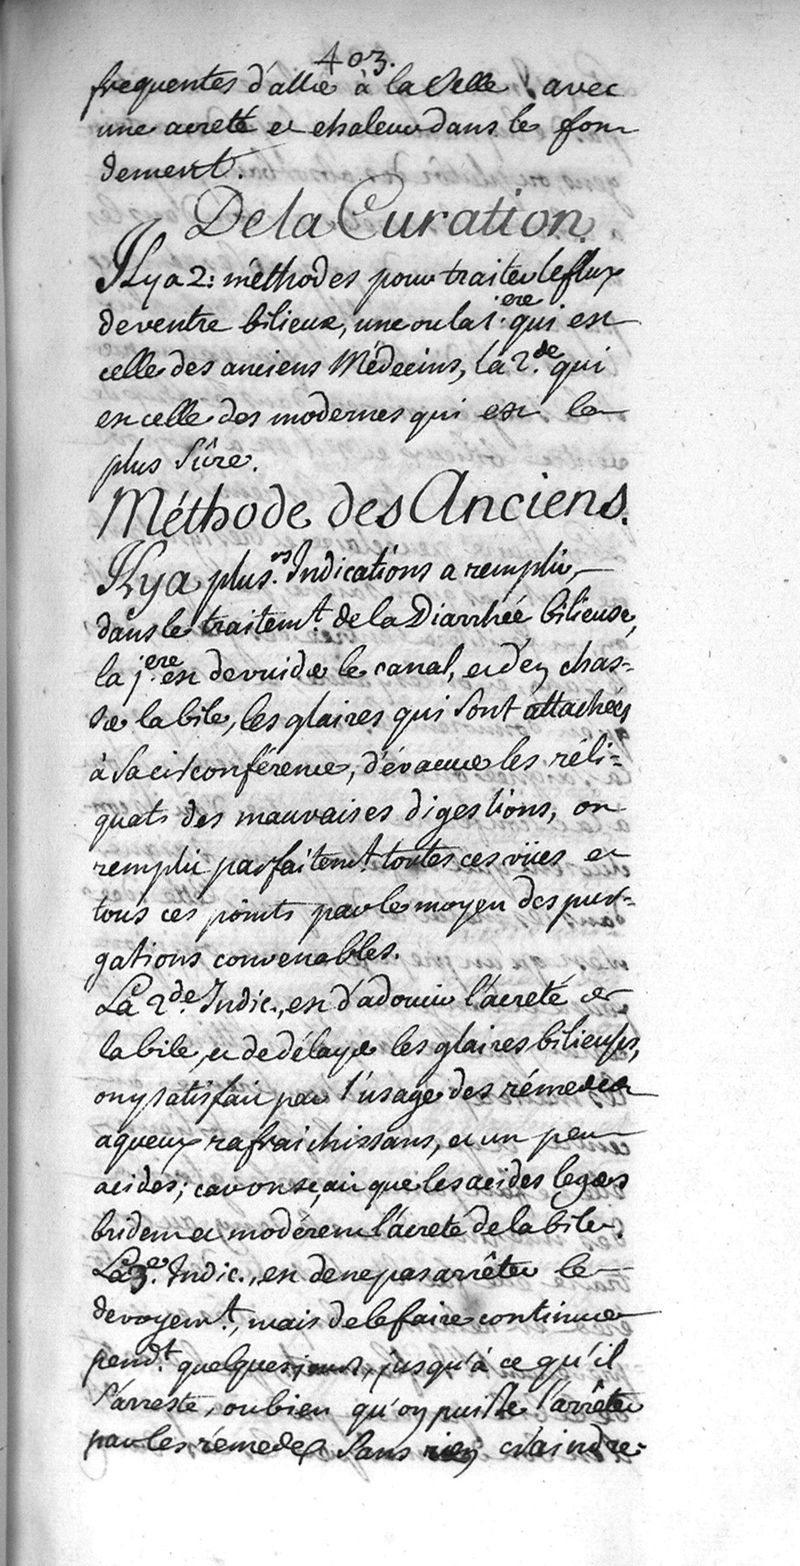 403.
frequentes d'aller à la Selle avec
une acreté et chaleur dans le fon
dement.
De la Curation.
Il y a 2: méthodes pour traiter le flux
de ventre bilieux, une ou la 1.ere qui est
celle des anciens Médecins, La 2.de qui
est celle des modernes qui est la
plus Sûre.
Méthode des Anciens.
Il y a plus.rs Indications a remplir
dans le traitem.t de la Diarrhée bilieuse,
la 1.ere est de vuider le canal, et d'en chas=
ser la bile, les glaires qui Sont attachées
à Sa circonférence, d'évacuer les réli=
quats des mauvaises digestions, on
remplit parfaitem.t toutes ces vües et
tous ces points par le moyen des pur=
gations convenables.
La 2.de Indic., est d'adoucir l'acreté de
la bile, et de délayer les glaires bilieuses,
on y satisfait par l'usage des rémedes
aqueux rafraichissans, et un peu
acides; car on sçait que les acides legers
brident et modèrent l'acreté de la bile.
La 3.e Indic., est de ne pas arrêter le
devoyem.t, mais de le faire continuer
pend.t quelques jours, jusqu'à ce qu'il
S'arreste, ou bien qu'on puisse l'arrêter
par les rémedes Sans rien craindre.